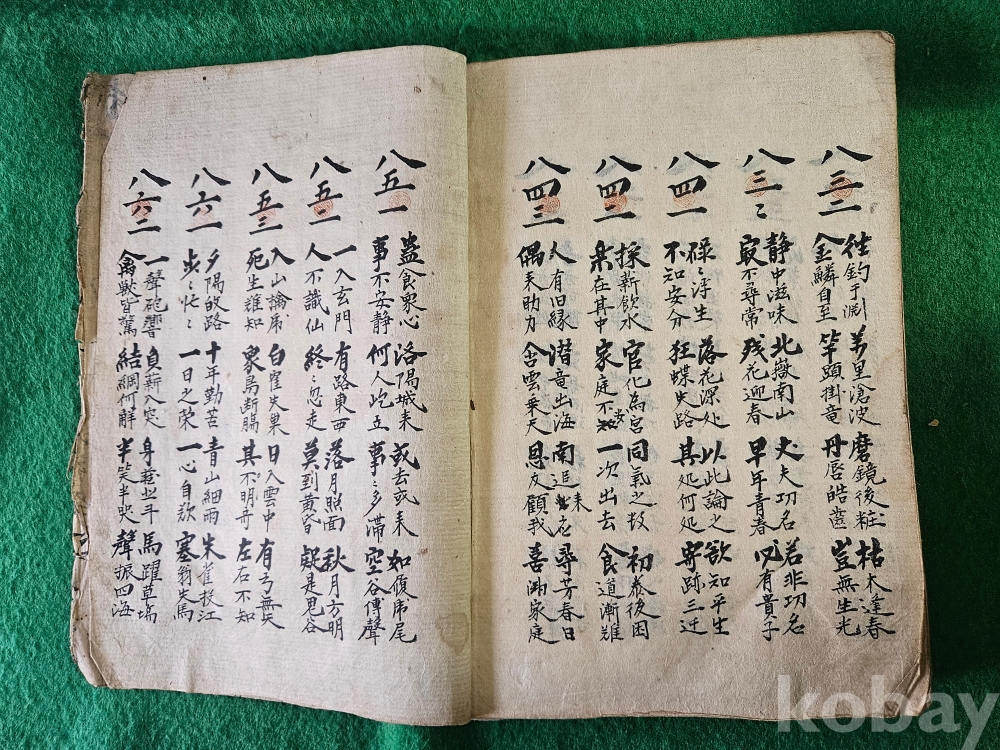 八三二
往釣于淵 萬里滄波 磨鏡後粧 枯木逢春
金鱗自至 竿頭掛竜 丹唇皓齒 豈無生光
八三三
静中滋味 北嶽南山 大夫功名 若非功名
最不尋常 残花迎春 早年青春 有貴子
八四一
碌〻浮生 落花深处 以此論之 欲知平生
不知安分 狂蝶失路 其延何延 寄跡三迁
八四二
採薪飲水 官化為宮 同氣之枝 初泰後困
楽在其中 家庭不安 一次出去 食道漸难
八四三
人有旧緣 潜竜出海 南追来 尋芳春日
偶来助力 含雲乗天 恩友顧我 喜溢家庭
八五一
蠱食衆心 洛陽城東 或去或来 如履席尾
事不安静 何人屹立 事〻多滞 空谷傳聲
八五二
一入玄門 有路東西 落月照面 秋月方明
人不識仙 終〻忽走 莫到黄昏 疑是鬼谷
八五三
入山擒席 白雀失巢 日入雲中 有弓無矢
死生难知 衆鳥断腸 其不明奇 左右不知
八六一
夕陽故路 十年勤苦 青山細雨 朱雀投江
步〻忙〻 一日之榮 一心自歎 塞翁失馬
八六二
一聲砲響 負薪入突 身 斗 馬躍草塲
禽獣皆驚 結綱何解 半笑半哭 聲振四海
kobay